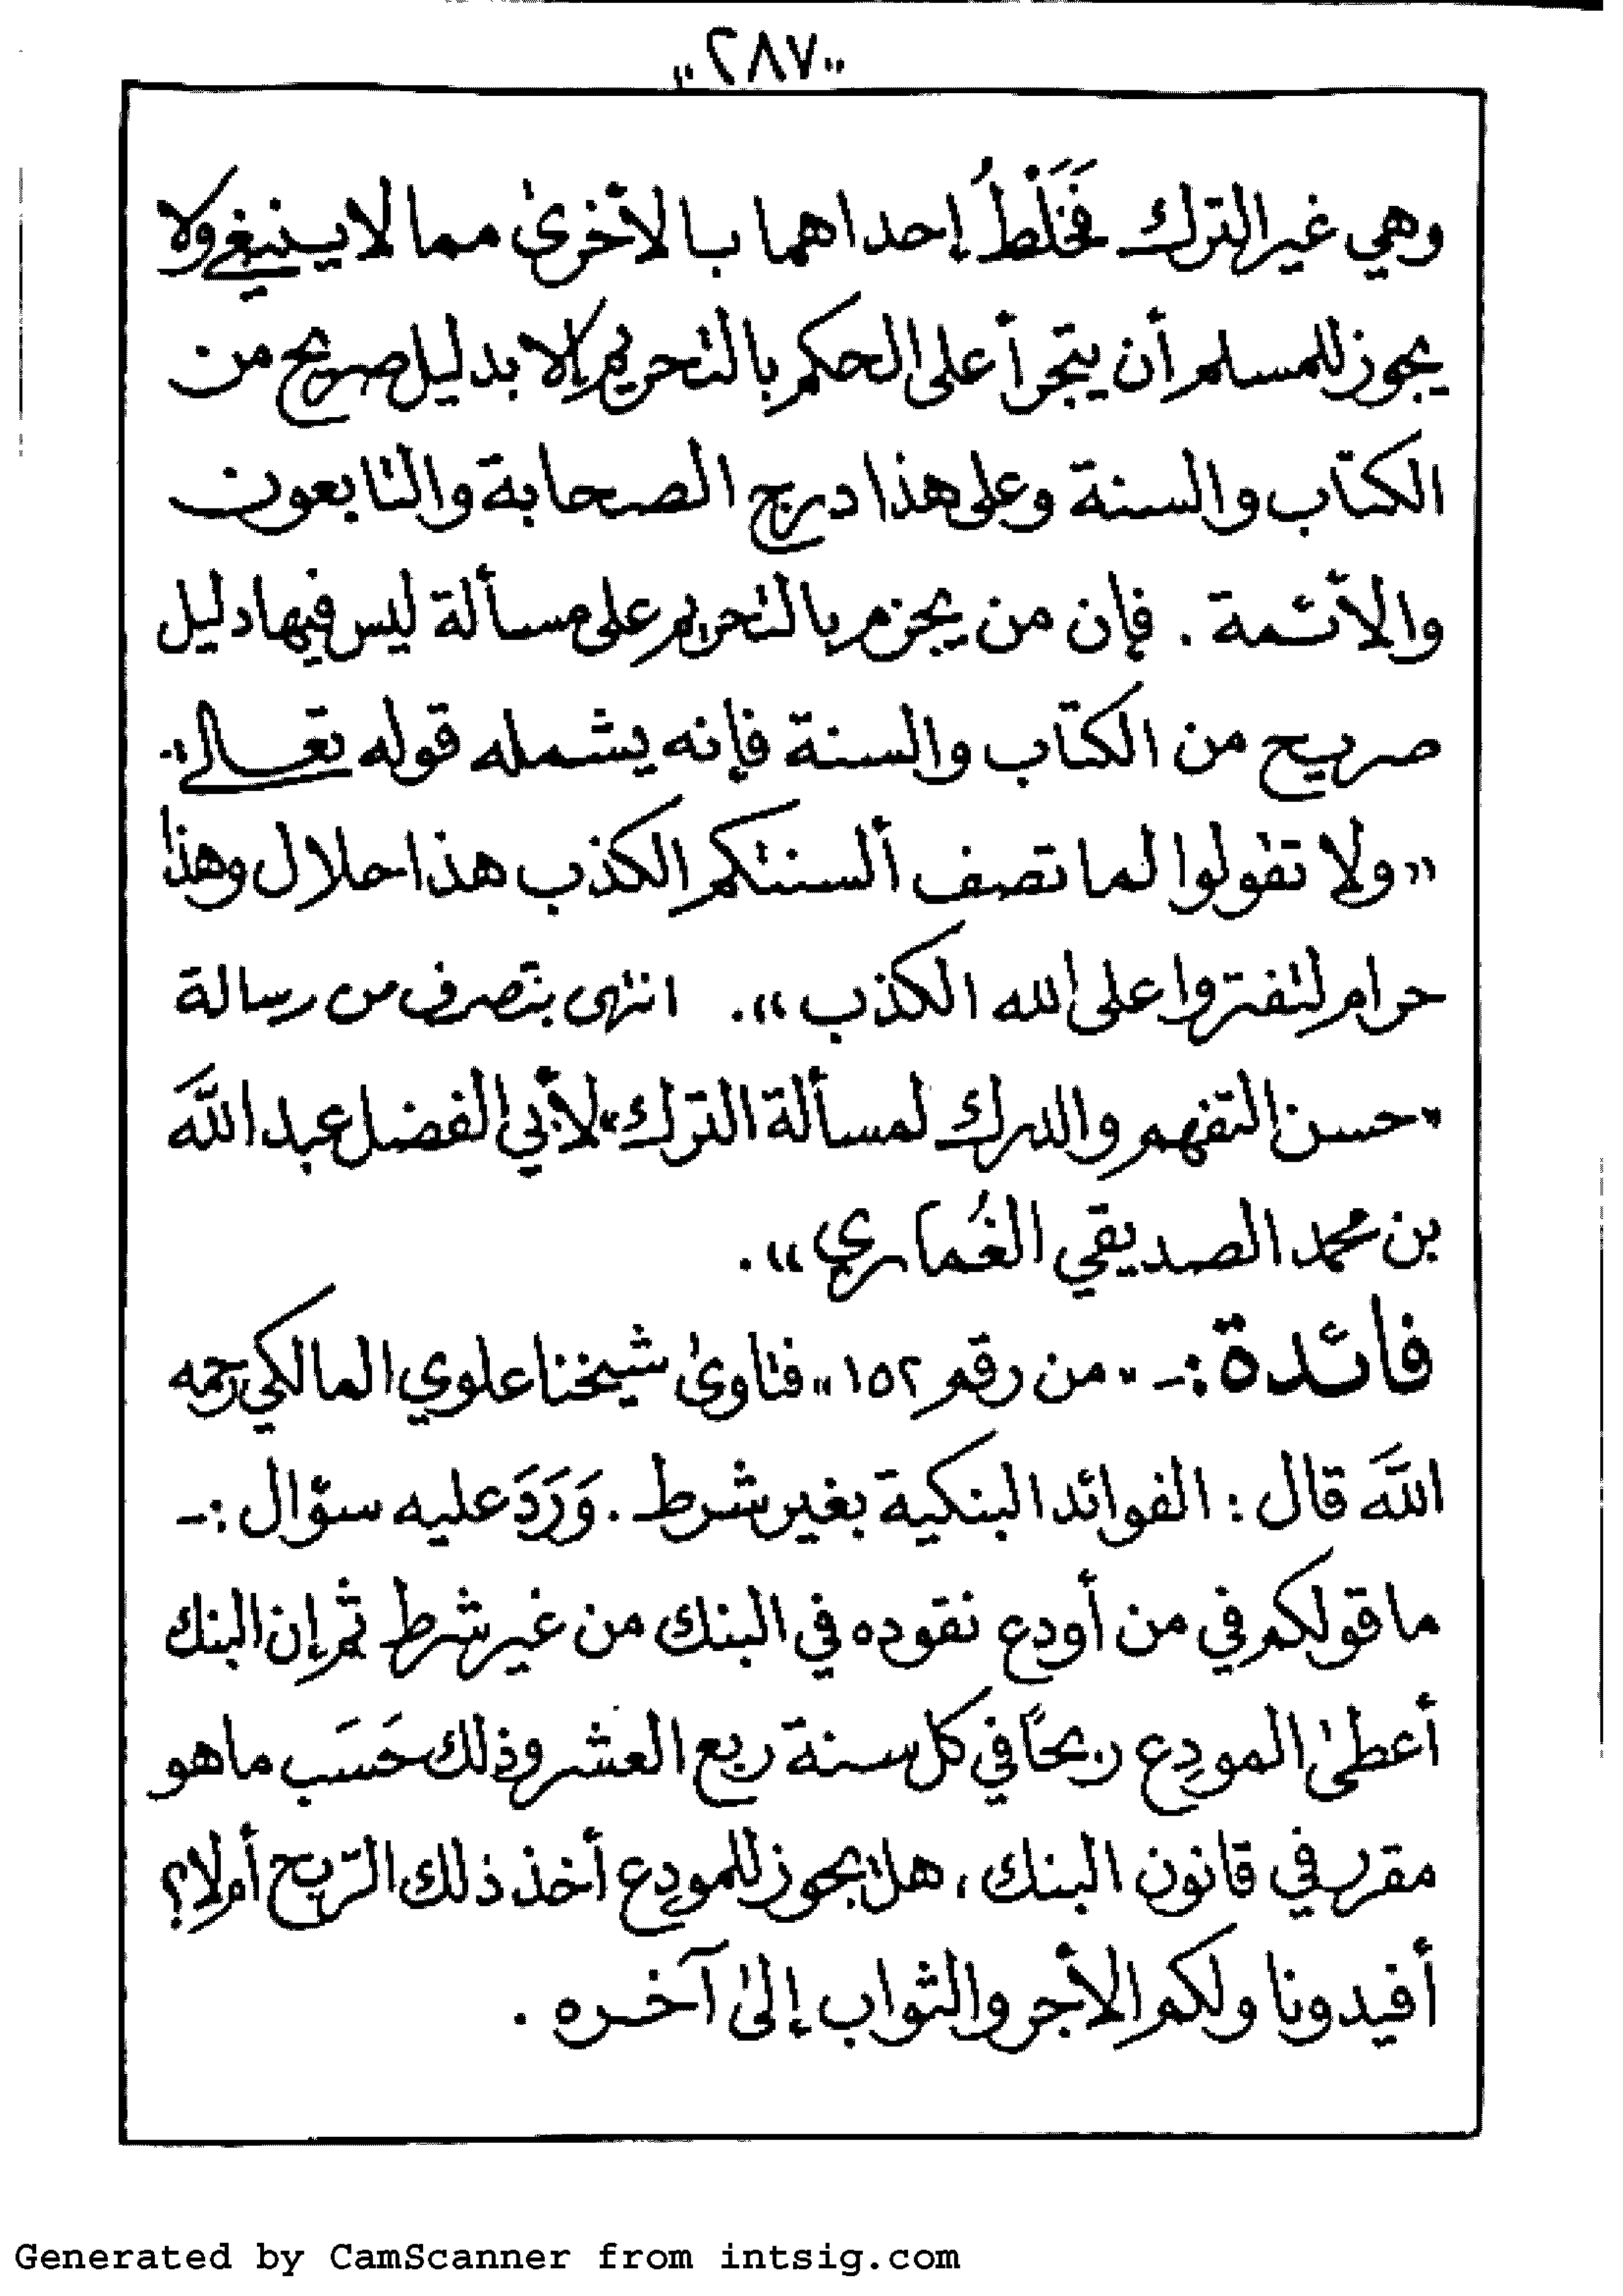 "٢٨٧"
وهي غير الترك فَخَلْطُ إحداهما بالأخرىٰ مما لا ينبغي ولا
يجوز للمسلم أن يتجرأ على الحكم بالتحريم إلا بدليل صريح من
الكتاب والسنة وعلى هذا درج الصحابة والتابعون
والأئمة . فإن من يجزم بالتحريم على مسألة ليس فيها دليل
صريح من الكتاب والسنة فإنه يشمله قوله تعالى:-
«ولا تقولوا لما تصف ألسنتكم الكذب هذا حلال وهذا
حرام لتفتروا على الله الكذب». انتهى بتصرف من رسالة
"حسن التفهم والدرك لمسألة الترك" لأبي الفضل عبد اللَّه
بن محمد الصديقي الغُماري».
فائدة:- "من رقم ١٥٢" فتاوىٰ شيخنا علوي المالكي رحمه
اللَّه قال: الفوائد البنكية بغير شرط. وَرَدَ عليه سؤال:-
ما قولكم في من أودع نقوده في البنك من غير شرط ثم إن البنك
أعطىٰ المودِع ربحًا في كل سنة ربع العشر وذلك حَسَب ما هو
مقرر في قانون البنك، هل يجوز للمودِع أخذ ذلك الرّبح أم لا؟
أفيدونا ولكم الأجر والثواب إلىٰ آخره .
Generated by CamScanner from intsig.com